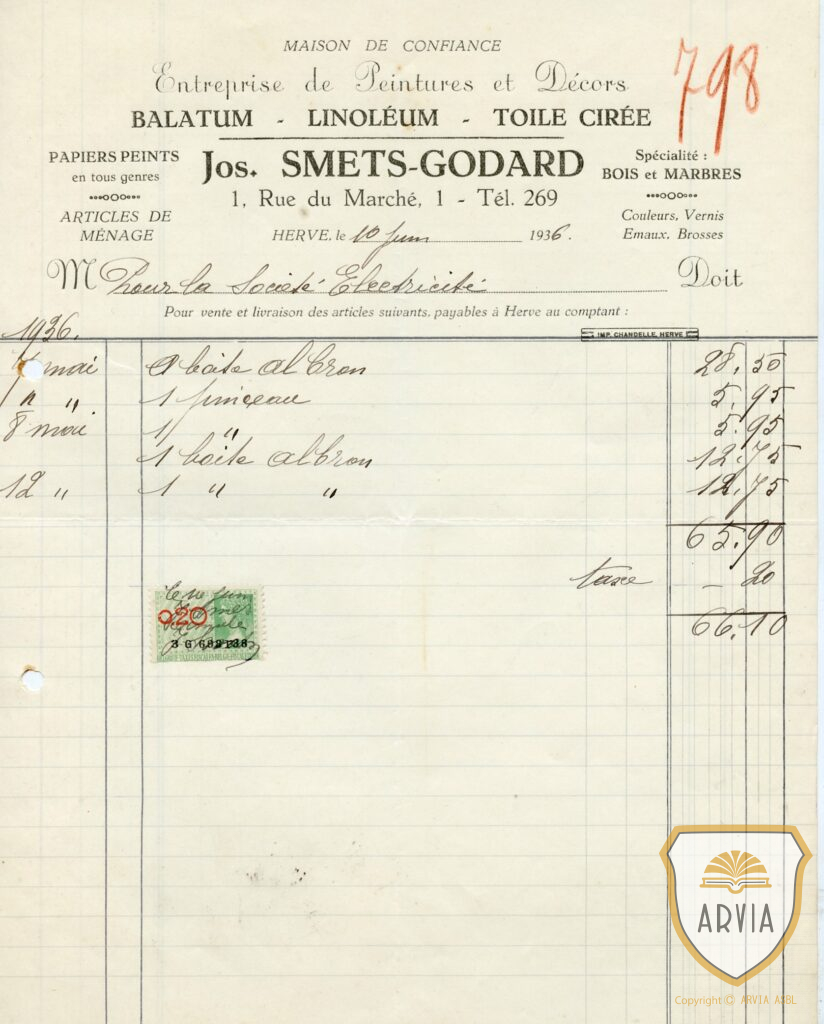 MAISON DE CONFIANCE
798
Entreprise de Peintures et Décors
BALATUM - LINOLÉUM - TOILE CIRÉE
PAPIERS PEINTS
en tous genres
ARTICLES DE
MÉNAGE
Jos. SMETS-GODARD
1, Rue du Marché, 1 - Tél. 269
HERVE, le 10 juin 1936.
Spécialité :
BOIS et MARBRES
Couleurs, Vernis
Emaux, Brosses
M Pour la Societé Electricité Doit
Pour vente et livraison des articles suivants, payables à Herve au comptant :
IMP. CHANDELLE, HERVE
1936.
mai boite albron 28,50
" " 1 pinceau 5,95
8 mai 1 " 5.95
1 boite albron 12,75
12 " 1 " " 12,75
65.90
taxe - 20
66.10
0.20
ARVIA
Copyright © ARVIA ASBL